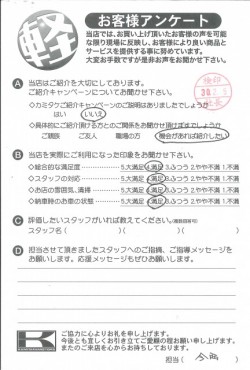 軽
お客様アンケート
当店では、お買い上げ頂いたお客様の声を可能
な限り現場に反映し、お客様により良い商品と
サービスを提供する事に努めています。
大変お手数ですが是非お声をお聞かせ下さい。
A 当店はご紹介を大切にしてあります。
ご紹介キャンペーンについてお聞かせ下さい。
◇カミタケご紹介キャンペーンのご説明はありましたでしょうか
はい いいえ
◇具体的にご紹介頂ける方とのご関係をお聞かせ頂けますでしょうか
ご親族 ご友人 職場の方 機会があれば紹介したい
B 当店を実際にご利用になった印象をお聞かせ下さい。
◇総合的な満足度 5.大満足 4.満足 3.ふつう 2.やや不満 1.不満
◇スタッフの対応 5.大満足 4.満足 3.ふつう 2.やや不満 1.不満
◇お店の雰囲気、清掃 5.大満足 4.満足 3.ふつう 2.やや不満 1.不満
◇納車時のお車の状態 5.大満足 4.満足 3.ふつう 2.やや不満 1.不満
C 評価したいスタッフがいれば教えてください。(複数回答可)
スタッフ名( )( )( )
D 担当させて頂きましたスタッフへのご指摘、ご指導メッセージを
お願いします。応援メッセージもぜひお願いします。
K
ご協力に心よりお礼を申し上げます。
今後とも宜しくお引き立てご愛顧の程お願い申し上げます。
またのご来店を心からお待ちしております。
担当( 今西 )